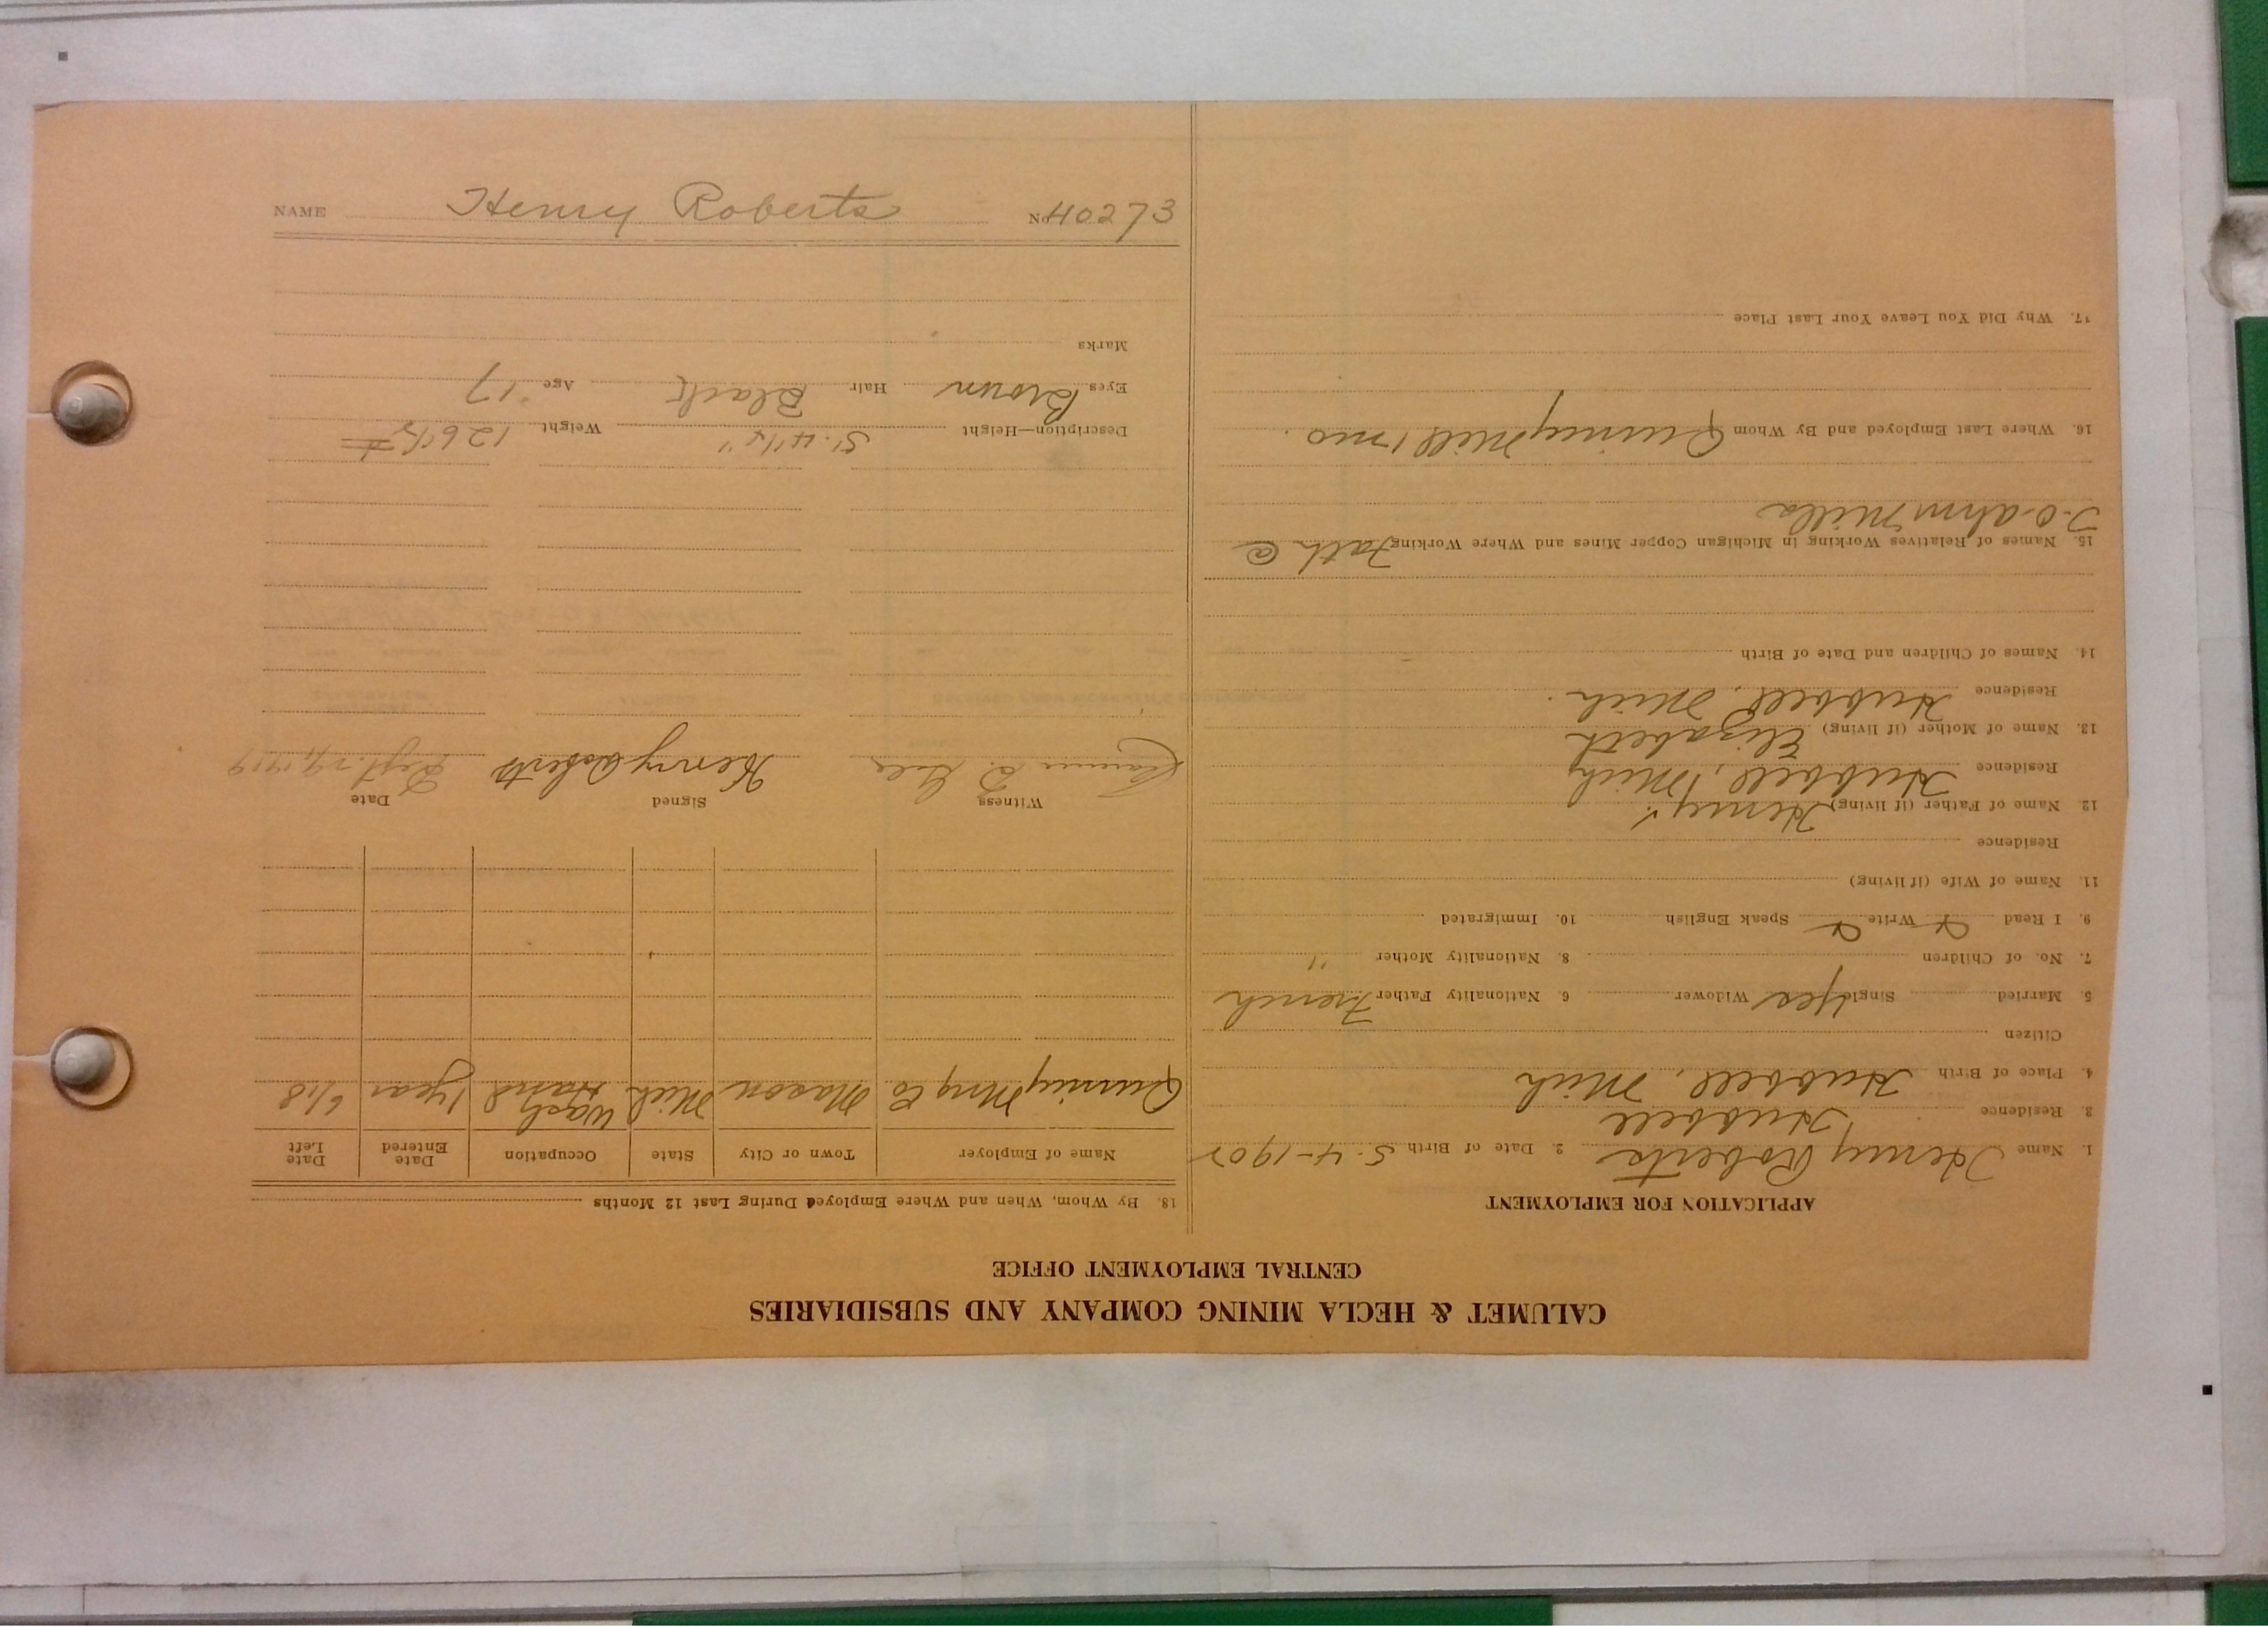 NAME Henry Roberts No. 40273
CALUMET & HECLA MINING COMPANY AND SUBSIDIARIES
CENTRAL EMPLOYMENT OFFICE
APPLICATION FOR EMPLOYMENT
1. Name Henry Roberts 2. Date of Birth 5-4-1902
3. Residence Hubbell
4. Place of Birth Hubbell, Mich
Citizen
5. Married Single Yes Widower 6. Nationality Father French
7. No. of Children 8. Nationality Mother "
9. I Read Write Speak English 10. Immigrated
11. Name of Wife (if living)
Residence
12. Name of Father (if living) Henry
Residence Hubbell, Mich
13. Name of Mother (if living) Elizabeth
Residence Hubbell, Mich.
14. Names of Children and Date of Birth
15. Names of Relatives Working in Michigan Copper Mines and Where Working Fath @
Mills
16. Where Last Employed and By Whom Quincy Mill 1 mo.
17. Why Did You Leave Your Last Place
18. By Whom, When and Where Employed During Last 12 Months
Name of Employer Town or City State Occupation Date Entered Date Left
Quincy Mng Co Mason Mich Wash Hand 1 year 6/18
Witness Signed Date
Henry Roberts Sept. 29, 1919
Description—Height 5'. 4 1/4" Weight 126 1/2 #
Eyes Brown Hair Black Age 17
Marks